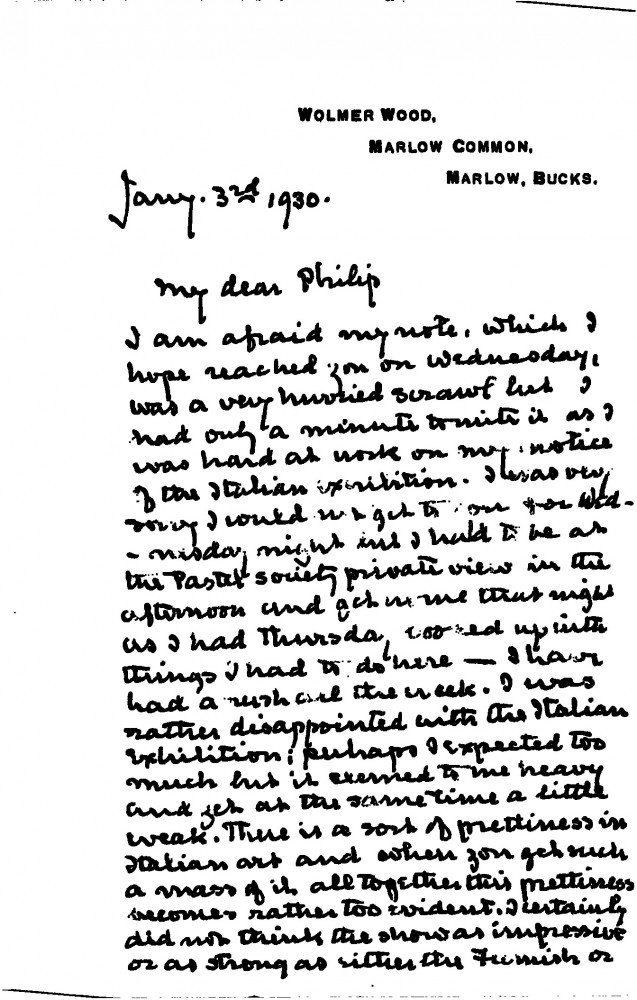 WOLMER WOOD,
MARLOW COMMON,
MARLOW, BUCKS.
Jany. 3rd 1930.
My dear Philip
I am afraid my note, which I
hope reached you on Wednesday,
was a very hurried scrawl but I
had only a minute to write it as I
was hard at work on my notice
of the Italian exhibition. I was very
sorry I could not get to you for Wed-
-nesday night but I had to be at
the Pastel Society private view in the
afternoon and get home that night
as I had Thursday booked up with
things I had to do here — I have
had a rush all the week. I was
rather disappointed with the Italian
Exhibition; perhaps I expected too
much but it seemed to me heavy
and yet at the same time a little
weak. There is a sort of prettiness in
Italian art and when you get such
a mass of it all together this prettiness
becomes rather too evident. I certainly
did not think the show as impressive
or as strong as either the Flemish or